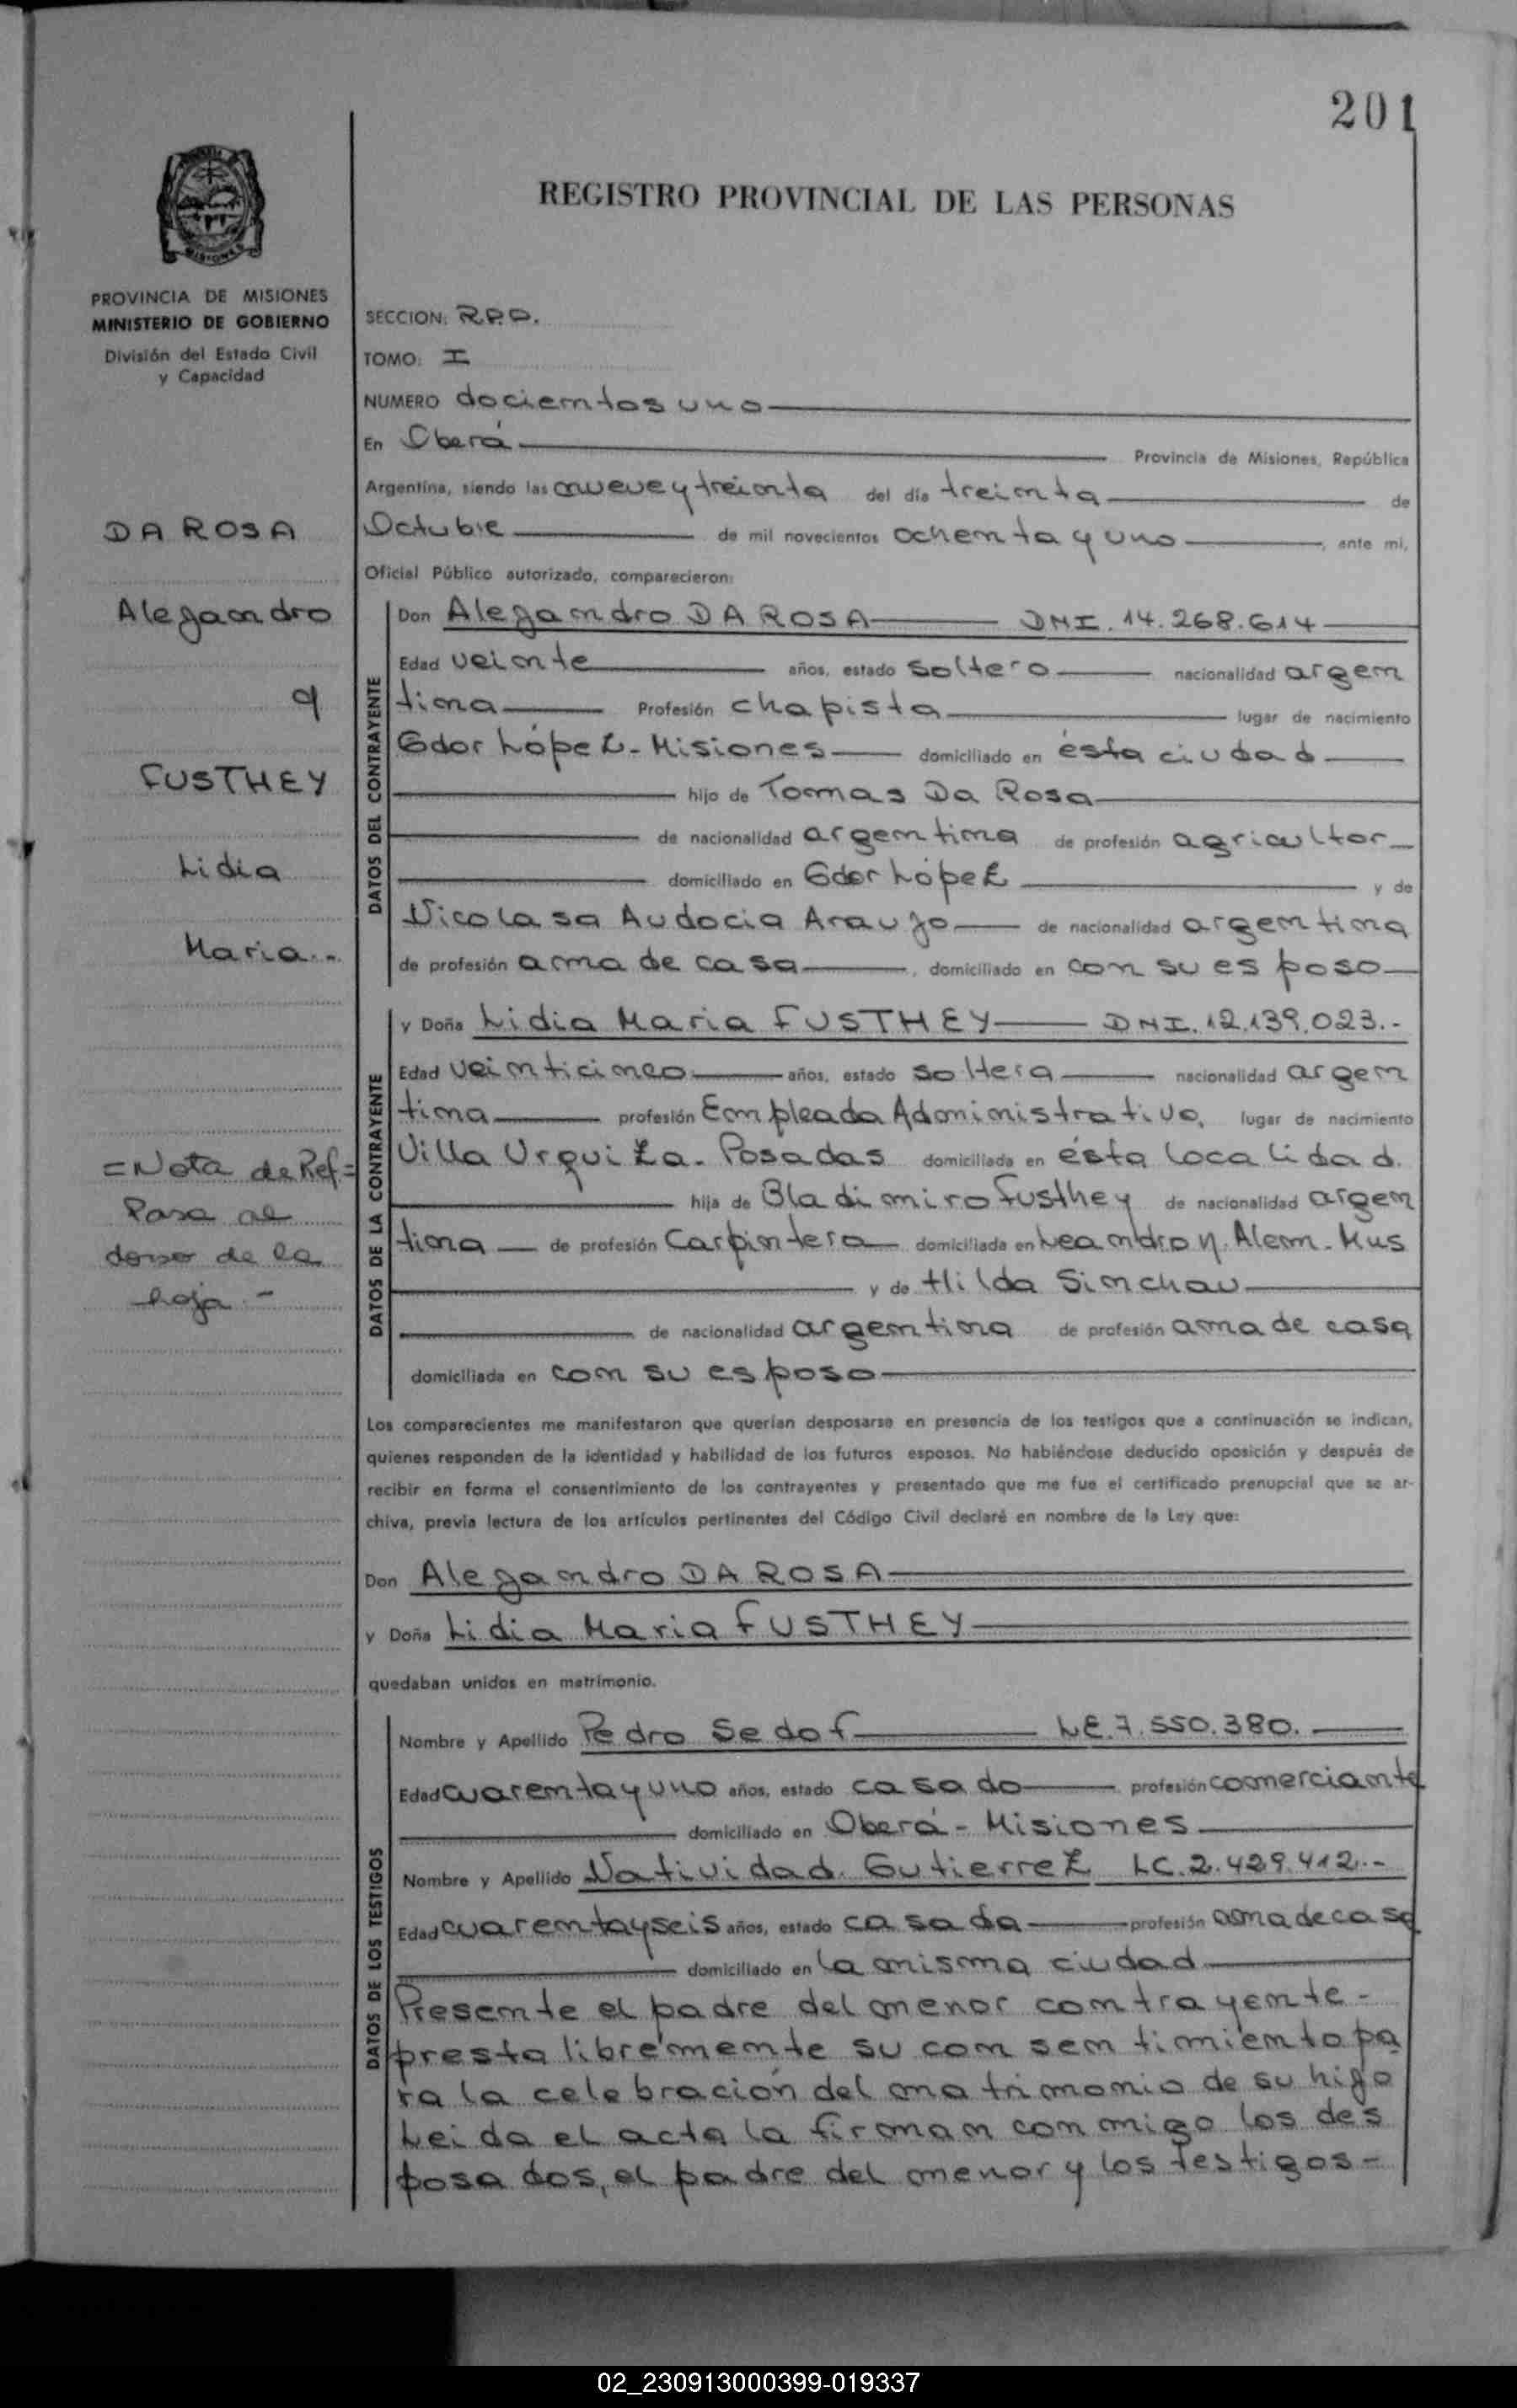 201
REGISTRO PROVINCIAL DE LAS PERSONAS
MISIONES
PROVINCIA DE MISIONES
MINISTERIO DE GOBIERNO
División del Estado Civil
y Capacidad
DA ROSA
Alejandro
y
FUSTHEY
Lidia
Maria..-
=Nota de Ref.=
Pasa al
dorso de la
hoja.-
SECCION: R.P.D.
TOMO: I
NUMERO docientos uno
En Oberá Provincia de Misiones, República
Argentina, siendo las nueve y treinta del día treinta de
Octubre de mil novecientos ochenta y uno, ante mi,
Oficial Público autorizado, comparecieron:
DATOS DEL CONTRAYENTE
Don Alejandro DA ROSA DNI. 14.268.614
Edad veinte años, estado soltero nacionalidad argen
tina Profesión chapista lugar de nacimiento
Gdor López-Misiones domiciliado en ésta ciudad
hijo de Tomas Da Rosa
de nacionalidad argentina de profesión agricultor
domiciliado en Gdor López y de
Nicolasa Audocia Araujo de nacionalidad argentina
de profesión ama de casa, domiciliado en con su esposo
DATOS DE LA CONTRAYENTE
y Doña Lidia Maria FUSTHEY DNI. 12.139.023.-
Edad veinticinco años, estado soltera nacionalidad argen
tina profesión Empleada Administrativo, lugar de nacimiento
Villa Urquiza. Posadas domiciliada en ésta localidad.
hija de Bladimiro Fusthey de nacionalidad argen
tina de profesión Carpintero domiciliada en Leandro N. Alem. Mns
y de Hilda Sinchau
de nacionalidad argentina de profesión ama de casa
domiciliada en con su esposo
Los comparecientes me manifestaron que querían desposarse en presencia de los testigos que a continuación se indican,
quienes responden de la identidad y habilidad de los futuros esposos. No habiéndose deducido oposición y después de
recibir en forma el consentimiento de los contrayentes y presentado que me fue el certificado prenupcial que se ar-
chiva, previa lectura de los artículos pertinentes del Código Civil declaré en nombre de la Ley que:
Don Alejandro DA ROSA
y Doña Lidia Maria FUSTHEY
quedaban unidos en matrimonio.
DATOS DE LOS TESTIGOS
Nombre y Apellido Pedro Sedof LE.7.550.380.
Edad cuarenta y uno años, estado casado profesión comerciante
domiciliado en Oberá - Misiones
Nombre y Apellido Natividad Gutierrez LC.2.429.412.-
Edad cuarenta y seis años, estado casada profesión ama de casa
domiciliado en la misma ciudad
Presente el padre del menor contrayente-
presta libremente su consentimiento pa
ra la celebración del matrimonio de su hijo
Leida el acta la firman conmigo los des
posados, el padre del menor y los testigos-
02_230913000399-019337